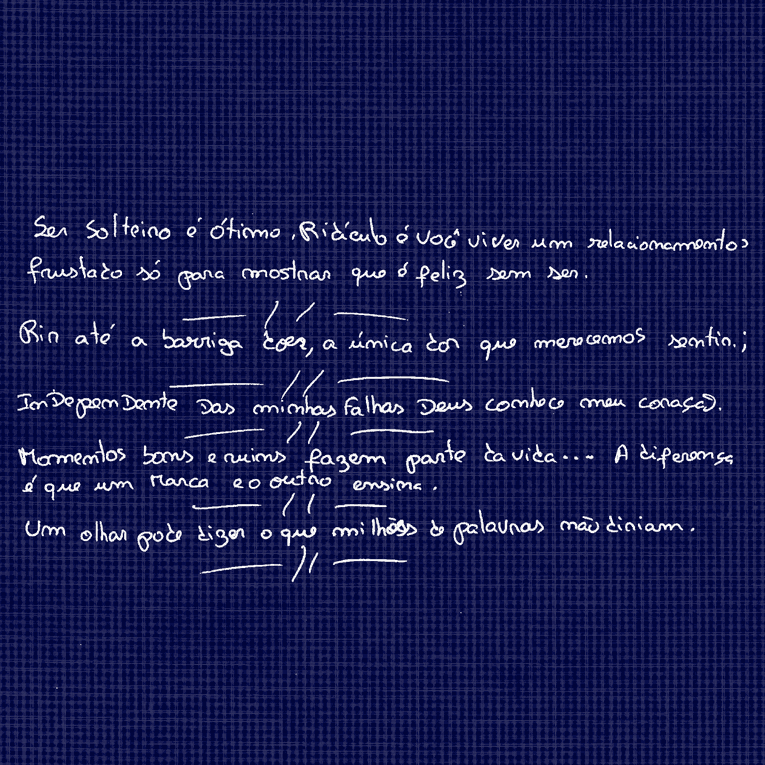 Ser solteiro é ótimo. Ridículo é você viver um relacionamento
frustado só para mostrar que é feliz sem ser.
Rir até a barriga doer, a única dor que merecemos sentir.;
InDepenDente Das minhas falhas Deus conhece meu coração.
Momentos bons e ruins fazem parte da vida.... A diferença
é que um Marca e o outro ensina.
Um olhar pode dizer o que milhões de palavras não diriam.